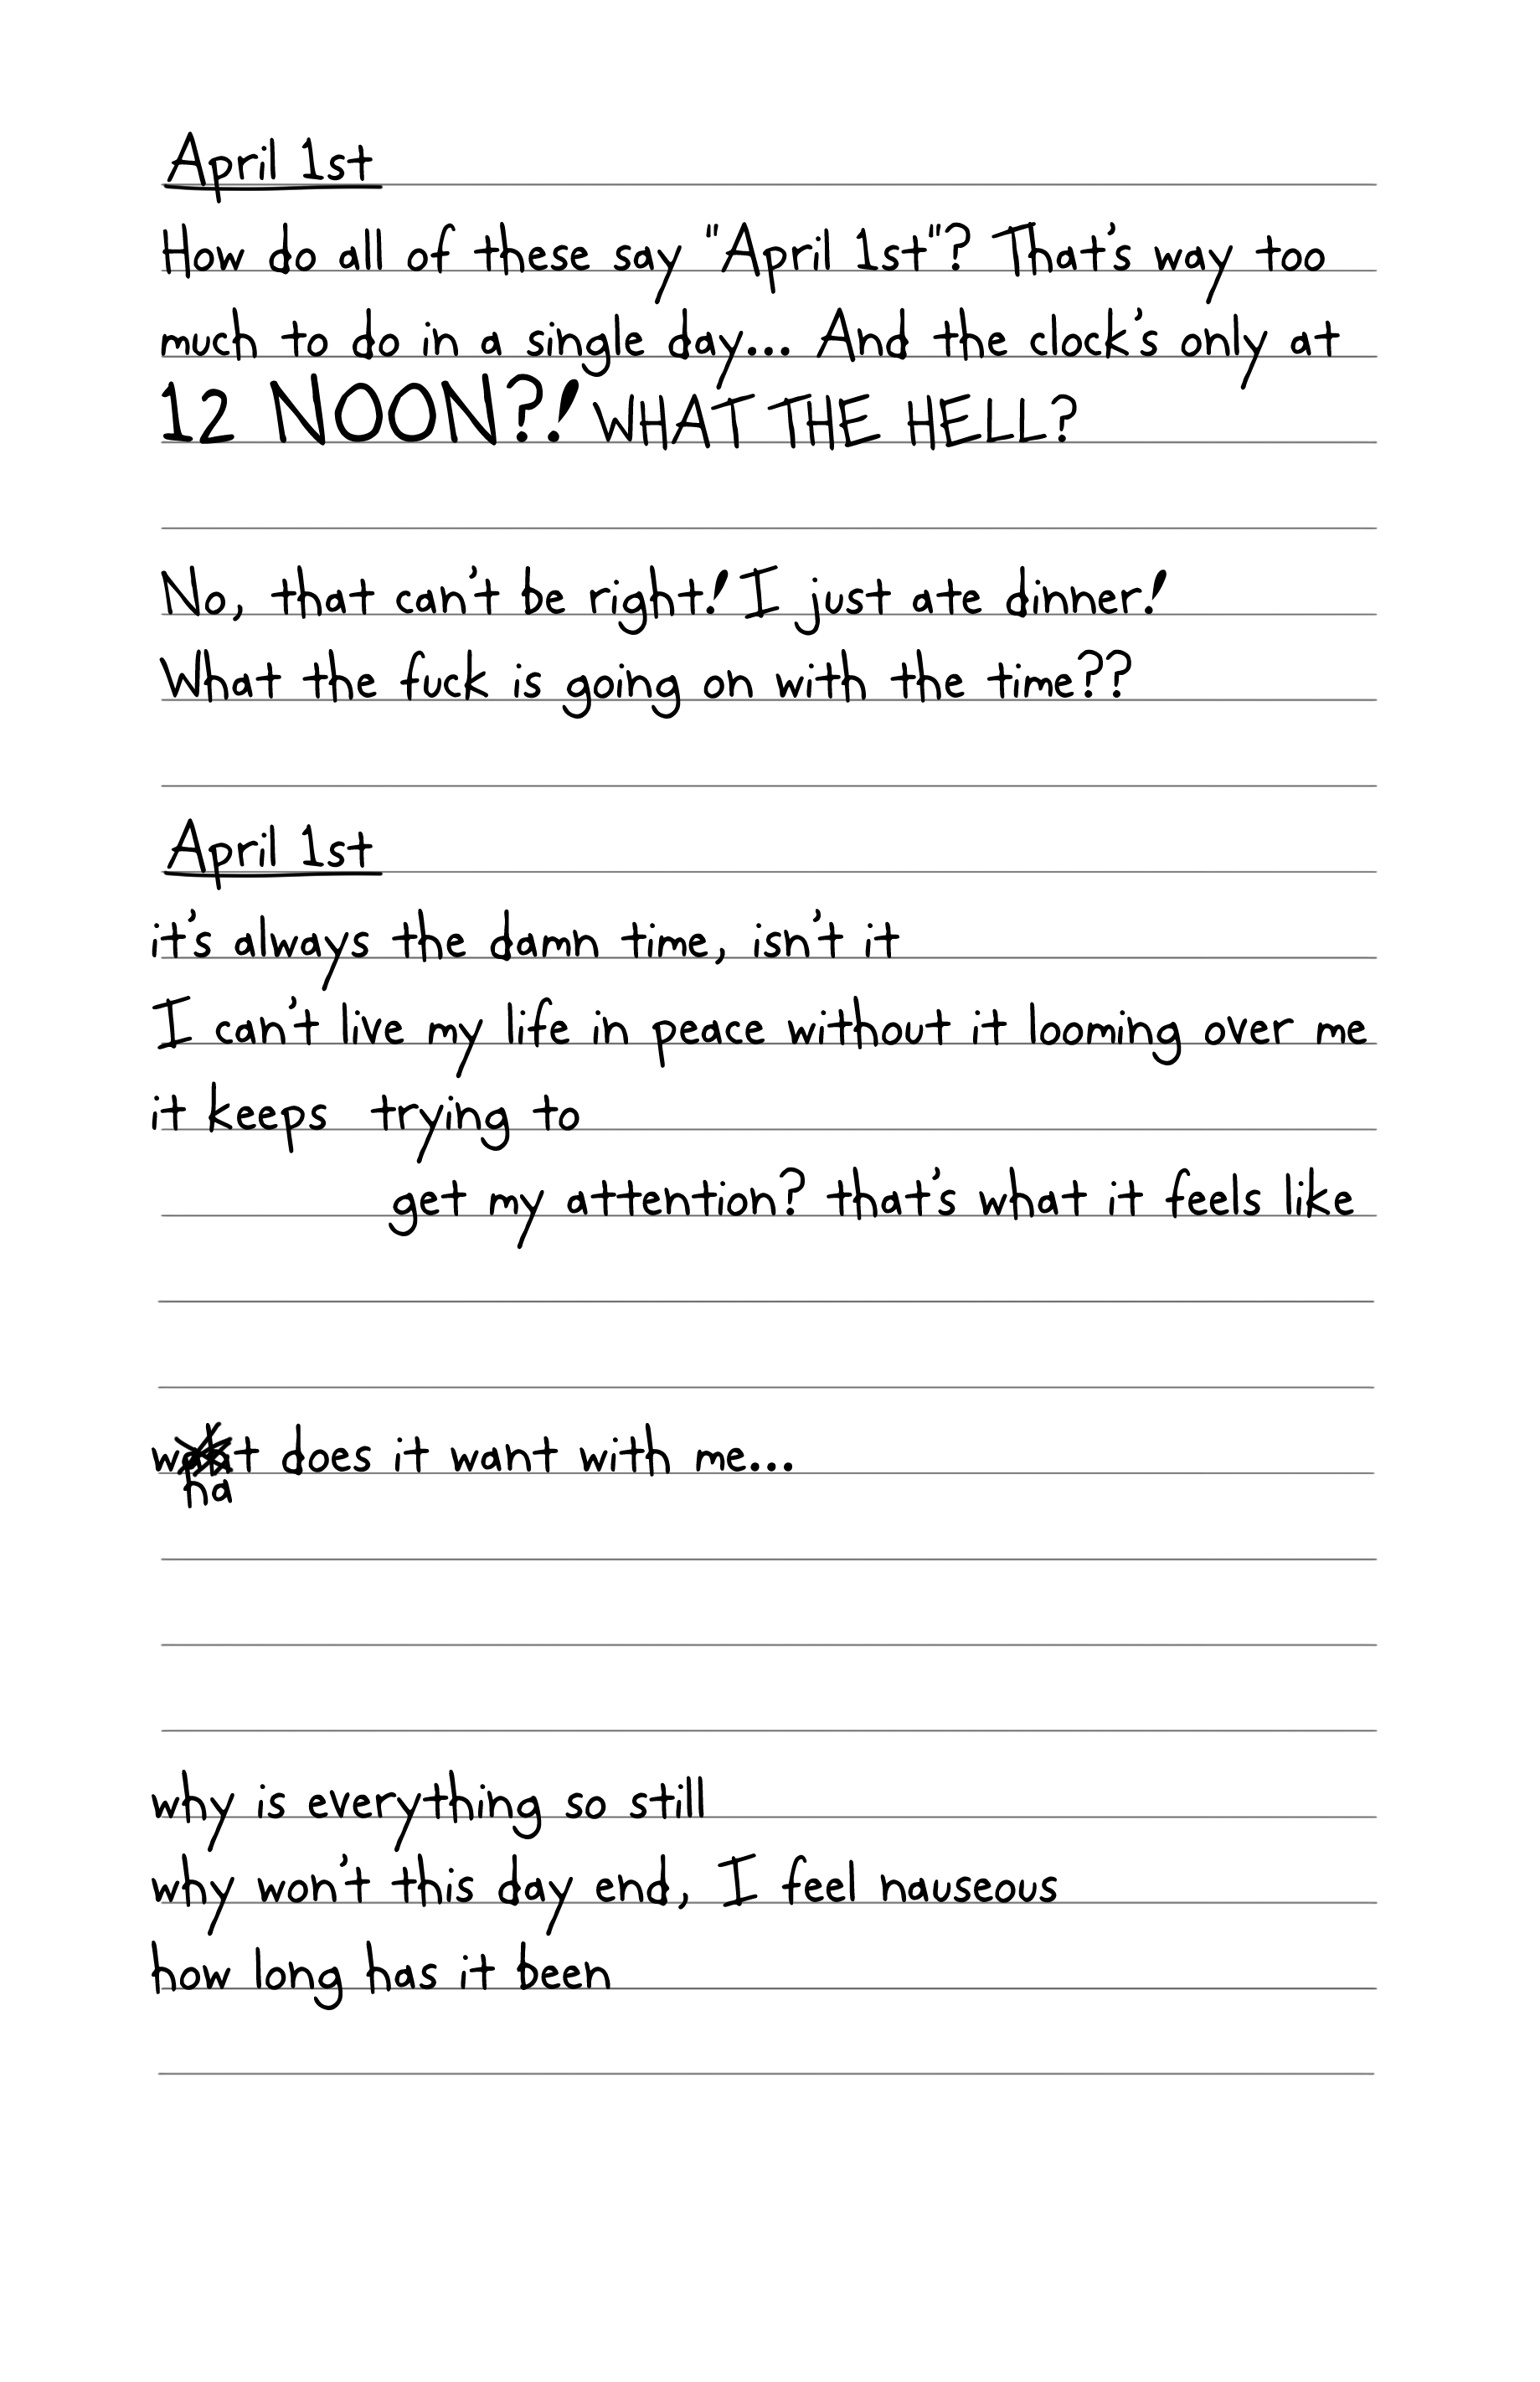 April 1st
How do all of these say "April 1st"? That's way too
much to do in a single day... And the clock's only at
12 NOON?! WHAT THE HELL?
No, that can't be right! I just ate dinner!
What the fuck is going on with the time??
April 1st
it's always the damn time, isn't it
I can't live my life in peace without it looming over me
it keeps trying to
get my attention? that's what it feels like
w t does it want with me...
ha
why is everything so still
why won't this day end, I feel nauseous
how long has it been